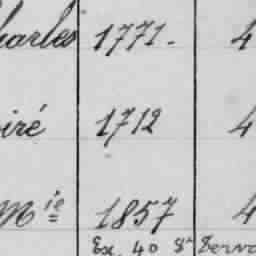 harles 1771. 4
oiré 1712 4
Mie 1857 4
Ex. 40 Sr Serva